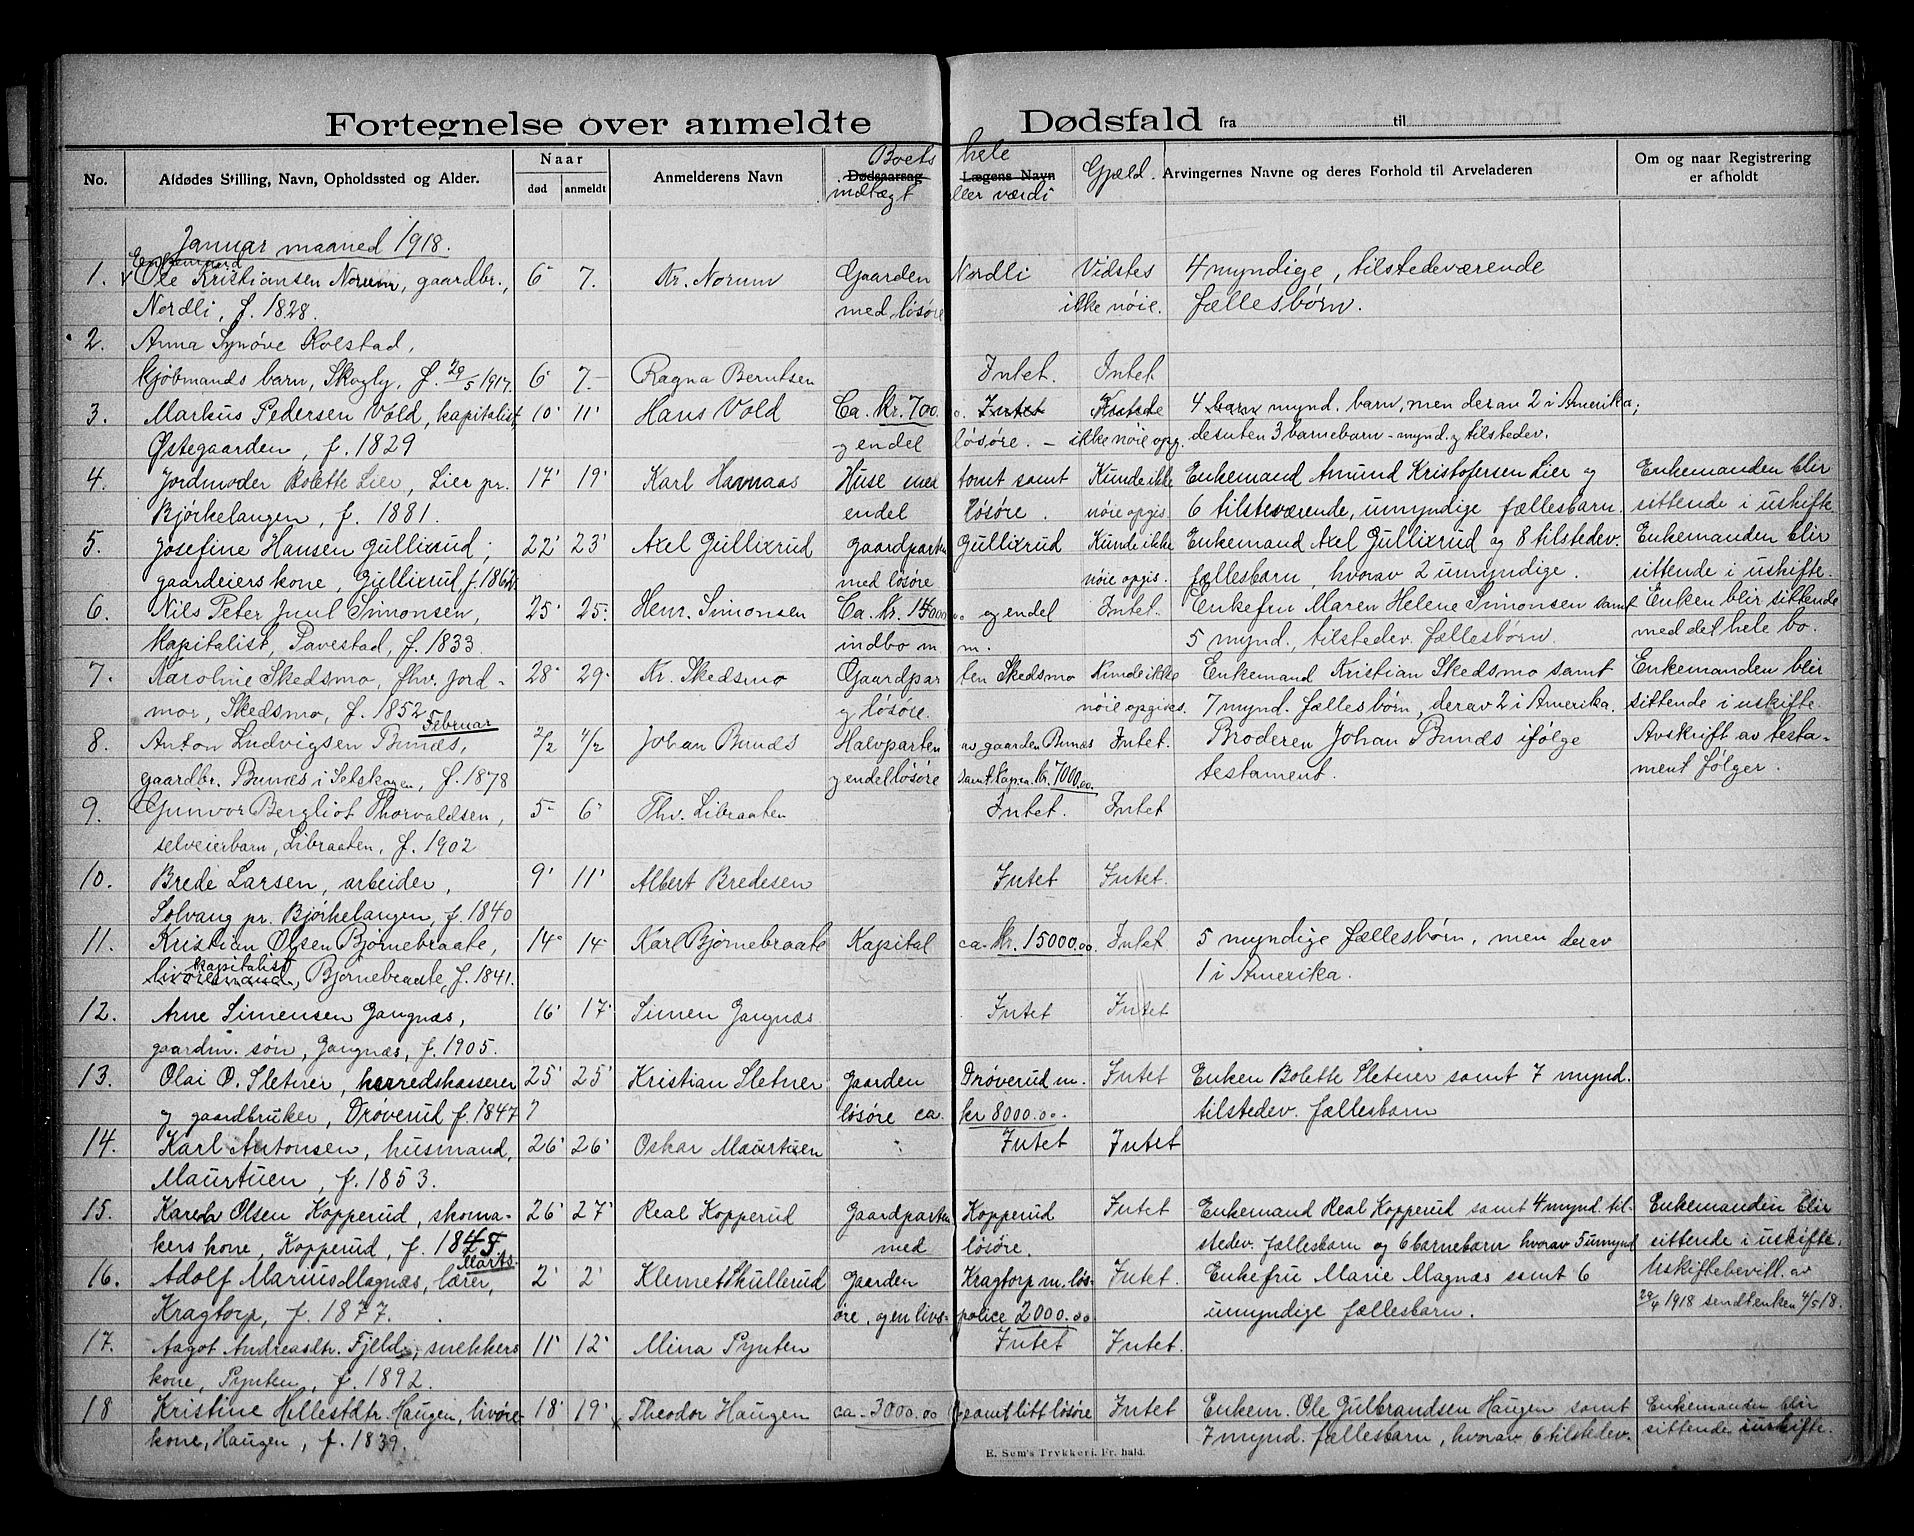 Fortegnelse over anmeldte Dødsfald fra til
No. Afdødes Stilling, Navn, Opholdssted og Alder. Naar død anmeldt Anmelderens Navn Dødsaarsag Boets indtægt Lægens Navn hele eller værdi Gjæld. Arvingernes Navne og deres Forhold til Arveladeren Om og naar Registrering er afholdt
Januar maaned 1918.
Enkemand
1. Ole Kristiansen Norum, gaardbr., 6 7. Kr. Norum Gaarden Nordli Vidstes 4 myndige, tilstedeværende
Nordli, f. 1828. med løsøre ikke nøie. fællesbørn.
2. Anna Synøve Kolstad,
kjøbmands barn, Skogly, f. 29/5 1917. 6 7. Ragna Berntsen Intet. Intet
3. Markus Pedersen Vold, kapitalist, 10 11 Hans Vold Ca. kr. 700.00 Intet Kunde 4 barn mynd. barn, men derav 2 i Amerika;
Østegaarden, f. 1829 og endel løsøre. - ikke nøie opg. desuten 3 barnebarn - mynd. og tilstedev.
4. Jordmoder Bolette Lier, Lier pr. 17 19 Karl Havnaas Huse med tomt samt Kunde ikke Enkemand Amund Kristofersen Lier og Enkemanden blir
Bjørkelangen, f. 1881. endel løsøre. nøie opgis. 6 tilsteværende, umyndige fællesbarn. sittende i uskifte
5. Josefine Hansen Gullixrud, 22 23 Axel Gullixrud Gaardparten Gullixrud Kunde ikke Enkemand Axel Gullixrud og 8 tilstedev. Enkemanden blir
gaardeiers kone, Gullixrud, f. 1862. med løsøre nøie opgis. fællesbarn, hvorav 2 umyndige. sittende i uskifte.
6. Nils Peter Juul Simonsen, 25 25. Henr. Simonsen Ca. kr. 14000.00 og endel Intet. Enkefru Maren Helene Simonsen samt Enken blir sittende
kapitalist, Pavestad, f. 1833. indbo m m. 5 mynd., tilstedev. fællesbørn. med det hele bo.
7. Karoline Skedsmo, fhv. jord- 28 29 Kr. Skedsmo Gaardparten Skedsmo Kunde ikke Enkemand Kristian Skedsmo samt Enkemanden blir
mor, Skedsmo, f. 1852 og løsøre. nøie opgives. 7 mynd. fællesbørn, derav 2 i Amerika. sittende i uskifte.
Februar
8. Anton Ludvigsen Bunæs, 2/2 4/2 Johan Bunæs Halvparten av gaarden Bunæs Intet. Broderen Johan Bunæs ifølge Avskrift av testa-
gaardbr. Bunæs i Setskogen, f. 1878 og endel løsøre samt kap. ca. kr. 7000.00. testament. ment følger.
9. Gunvor Bergliot Thorvaldsen, 5 6 Thv. Libraaten Intet. Intet
selveierbarn, Libraaten, f. 1902
10. Brede Larsen, arbeider, 9 11 Albert Bredesen Intet Intet.
Solvang pr. Bjørkelangen, f. 1840
11. Kristian Olsen Bjørnebraate, 14 14 Karl Bjørnebraate Kapital ca. kr. 15000.00 Intet 5 myndige fællesbørn, men derav
livøremand kapitalist, Bjørnebraate, f. 1841. 1 i Amerika.
12. Arne Simensen Gangnæs, 16 17 Simen Gangnæs Intet Intet
gaardm. søn, Gangnæs, f. 1905.
13. Olai O. Sletner, herredskasserer 25 25 Kristian Sletner Gaarden Drøverud m. Intet Enken Bolette Sletner samt 7 mynd.
og gaardbruker, Drøverud f. 1847 løsøre ca. kr 8000.00. tilstedev. fællesbarn
14. Karl Antonsen, husmand, 26 26 Oskar Maurtuen Intet Intet
Maurtuen, f. 1853.
15. Karen Olsen Kopperud, skoma- 26 27 Real Kopperud Gaardparten Kopperud Intet Enkemand Real Kopperud samt 4 mynd. til- Enkemanden blir
kers kone, Kopperud, f. 1845 med løsøre. stedev. fællesbarn og 6 barnebarn hvorav 5 umynd. sittende i uskifte.
Marts.
16. Adolf Marius Magnæs, lærer, 2 2 Klemet Skullerud Gaarden Kragtorp m. løs- Intet. Enkefru Marie Magnæs samt 6 Uskiftebevill. av
Kragtorp, f. 1877. øre, og en livs- police 2000.00 umyndige fællesbarn. 29/4 1918 sendt enken 4/5 18.
17. Aagot Andreasdtr. Fjeld, snekkers 11 12 Mina Pynten Intet Intet.
kone, Pynten, f. 1892.
18 Kristine Hellestdtr. Haugen, livøre- 18 19 Theodor Haugen ca. 3000.00 samt litt løsøre Intet Enkem. Ole Gulbrandsen Haugen samt Enkemanden blir
kone, Haugen, f. 1839. 7 mynd. fællesbarn, hvorav 6 tilstedev. sittende i uskifte.
E. Sem's Trykkeri. Fr. hald.